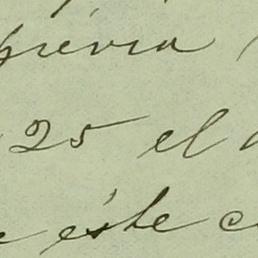 previa
25 el
este